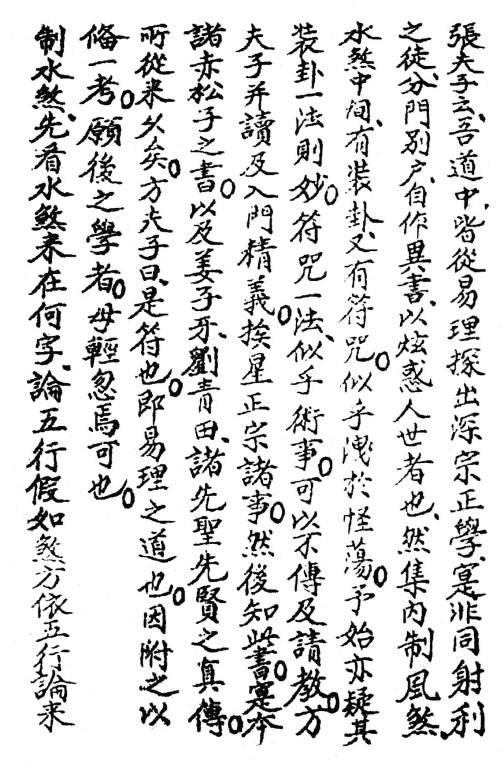 張夫子云、吾道中、皆從易理探出深宗正學、寔非同射利
之徒、分門別户、自作異書、以炫惑人世者也、然集内制風煞、
水煞中间、有装卦、又有符咒。似乎洩於怪蕩。予始亦疑其
装卦一法則妙。符咒一法、似乎術事。可以不傳及請教方
夫子并讀及入門精義。挨星正宗諸事。然後知此書。寔夲
諸赤松子之書。以及姜子牙、劉青田、諸先聖先賢之真傳。
所從来久矣。方夫子曰、是符也。即易理之道也。因附之以
俻一考。願後之學者。毋輕忽焉可也。
制水煞、先看水煞来在何字、論五行假如煞方依五行論来